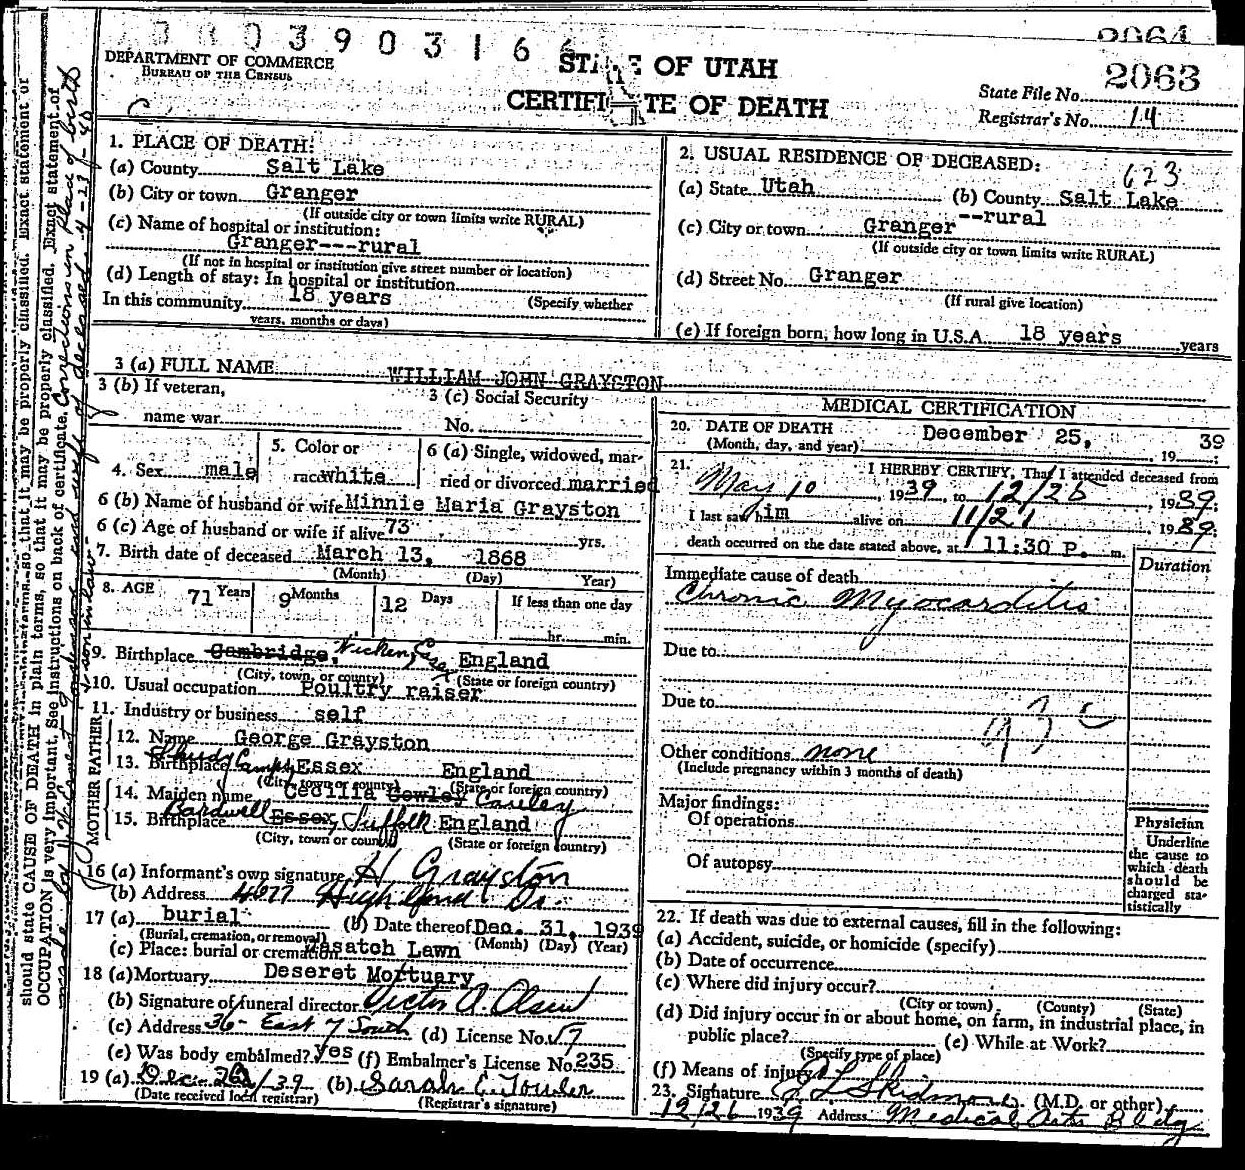 0003903166
2064
DEPARTMENT OF COMMERCE
BUREAU OF THE CENSUS
STATE OF UTAH
CERTIFICATE OF DEATH
2063
State File No.
Registrar's No. 14
C
1. PLACE OF DEATH:
(a) County Salt Lake
(b) City or town Granger
(If outside city or town limits write RURAL)
(c) Name of hospital or institution:
Granger---rural
(If not in hospital or institution give street number or location)
(d) Length of stay: In hospital or institution
In this community 18 years (Specify whether
years, months or days)
2. USUAL RESIDENCE OF DECEASED:
623
(a) State Utah (b) County Salt Lake
(c) City or town Granger --rural
(If outside city or town limits write RURAL)
(d) Street No. Granger
(If rural give location)
(e) If foreign born, how long in U.S.A. 18 years years
3 (a) FULL NAME WILLIAM JOHN GRAYSTON
3 (b) If veteran,
name war
3 (c) Social Security
No.
4. Sex male
5. Color or
race white
6 (a) Single, widowed, mar-
ried or divorced married
6 (b) Name of husband or wife Minnie Maria Grayston
6 (c) Age of husband or wife if alive 73 yrs.
7. Birth date of deceased March 13, 1868
(Month) (Day) Year)
8. AGE 71 Years 9 Months 12 Days If less than one day
hr. min.
9. Birthplace Cambridge, England
(City, town, or county) (State or foreign country)
10. Usual occupation Poultry raiser
11. Industry or business self
FATHER
12. Name George Grayston
13. Birthplace Shudy Camps Essex England
(City, town or county) (State or foreign country)
MOTHER
14. Maiden name Cecilia Cowley Caseley
15. Birthplace Bardwell Essex, Suffolk England
(City, town or county) (State or foreign country)
16 (a) Informant's own signature H Grayston
(b) Address 4077 Highland Dr.
17 (a) burial (b) Date thereof Dec. 31, 1939
(Burial, cremation, or removal) (Month) (Day) (Year)
(c) Place: burial or cremation Wasatch Lawn
18 (a) Mortuary Deseret Mortuary
(b) Signature of funeral director Victor A. Olsen
(c) Address 36- East 7 South (d) License No. 57
(e) Was body embalmed? yes (f) Embalmer's License No. 235
19 (a) Dec. 26/39 (b) Sarah E. Towler
(Date received local registrar) (Registrar's signature)
MEDICAL CERTIFICATION
20. DATE OF DEATH
(Month, day, and year) December 25, 19 39
21. I HEREBY CERTIFY, That I attended deceased from
May 10, 1939 to 12/25, 1939;
I last saw him alive on 11/21 1939;
death occurred on the date stated above, at 11:30 P. m.
Duration
Immediate cause of death
Chronic Myocarditis
Due to
Due to
93 c
Other conditions none
(Include pregnancy within 3 months of death)
Major findings:
Of operations
Of autopsy
Physician
Underline
the cause to
which death
should be
charged sta-
tistically
22. If death was due to external causes, fill in the following:
(a) Accident, suicide, or homicide (specify)
(b) Date of occurrence
(c) Where did injury occur?
(City or town) (County) (State)
(d) Did injury occur in or about home, on farm, in industrial place, in
public place? (e) While at Work?
(Specify type of place)
(f) Means of injury
23. Signature Skidmore (M.D. or other)
12/26 1939 Address Medical Arts Bldg
should state CAUSE OF DEATH in plain terms, so that it may be properly classified. Exact statement of
OCCUPATION is very important. See instructions on back of certificate.
Corrections in place of birth